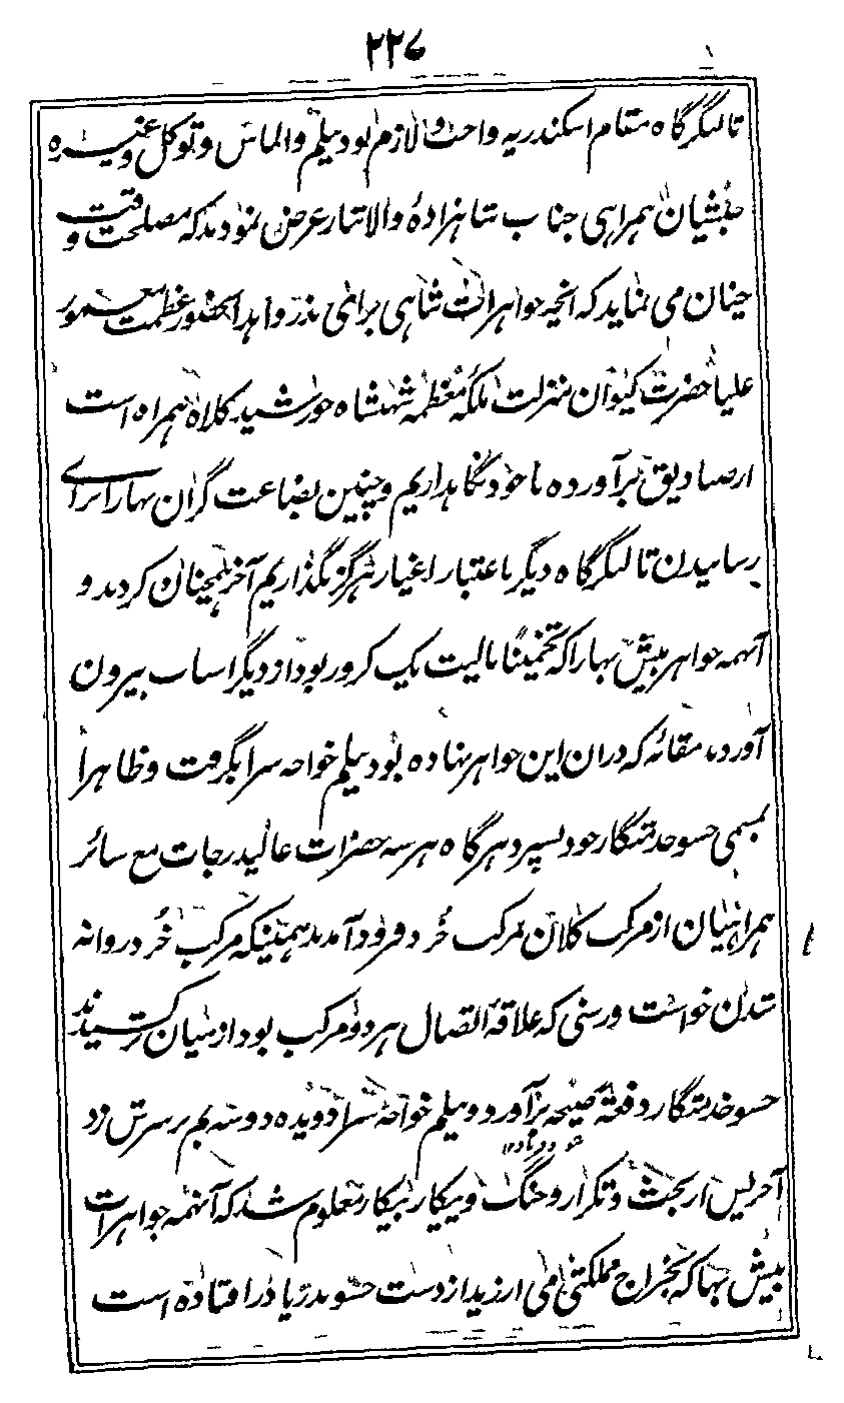 ۲۲۷
تا لنگرگاه مقام اسکندریه واحد و لازم بود دیلم و الماس و توکل وغیره
حبشیان همراهی جناب شاهزادهٔ والا تبار عرض نمودند که مصلحت وقت
چنان می نماید که آنچه جواهرات شاهی برای نذر و اهدا بحضور عظمت معمور
علیا حضرت کیوان منزلت ملکهٔ معظمه شهنشاه خورشید کلاه همراه است
از صنادیق برآورده با خود نگاهداریم و چنین بضاعت گران بها را برای
رسانیدن تا لنگرگاه دیگر باعتبار اغیار هرگز نگذاریم آخر همچنان کردند و
آنهمه جواهر بیش بها را که تخمیناً مالیت یک کرور بود از دیگر اسباب بیرون
آوردند مقائه که دران این جواهر نهاده بود دیلم خواجه سرا بگرفت و ظاهرا
بمسمی حسو خدمتگار خود بسپرد هرگاه هر سه حضرات عالیدرجات مع سائر
همراهیان از مرکب کلان بمرکب خُرد فرود آمدند همینکه مرکب خُرد روانه
شدن خواست و رسنی که علاقهٔ اتصال هر دو مرکب بود از میان کشیدند
حسو خدمتگار دفعة صیحه برآورد و دیلم خواجه سرا دویده دوسه بم بر سرش زد
آخر پس از بحث و تکرار و جنگ و پیکار بیکار معلوم شد که آنهمه جواهرات
بیش بها که بخراج مملکتی می ارزید از دست حسو بدریا در افتاده است